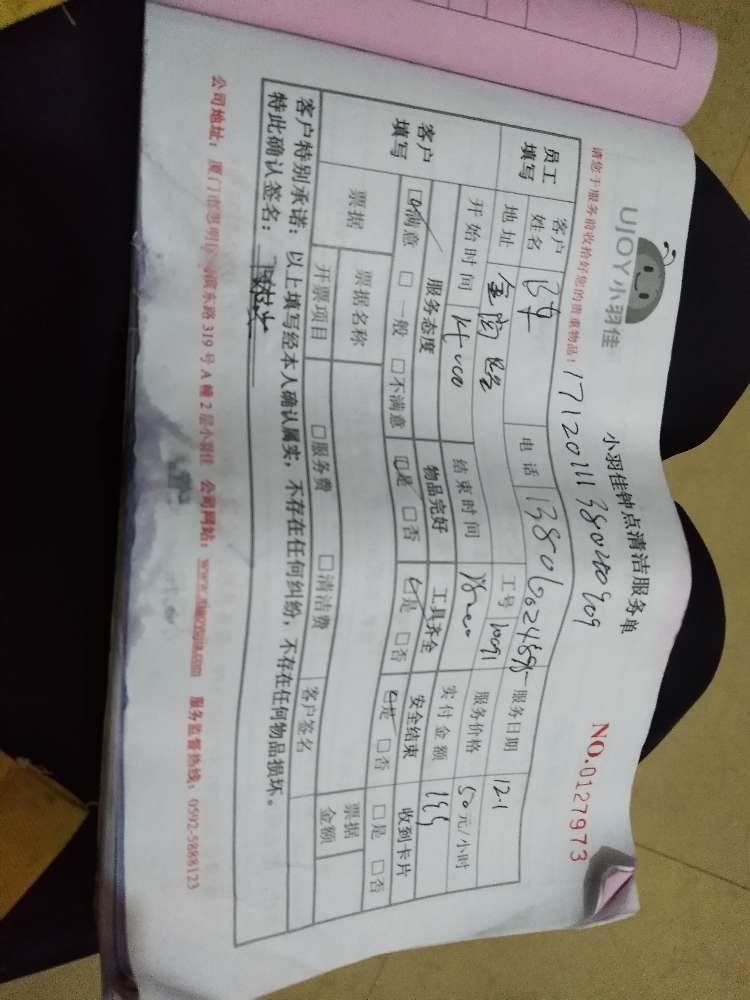 UJOY小羽佳
小羽佳钟点清洁服务单
NO.0127973
请您于服务前收拾好您的贵重物品！
员工填写 客户姓名 电话 服务日期 12.1
地址 金尚路 工号 10091 服务价格 50元/小时
开始时间 14:00 结束时间 实付金额
客户填写 服务态度 物品完好 工具齐全 安全结束 收到卡片
□满意 □一般 □不满意 □是 □否 □是 □否 □是 □否 □是 □否
票据 票据名称 票据金额
开票项目 □服务费 □清洁费 客户签名
客户特别承诺：以上填写经本人确认属实，不存在任何纠纷，不存在任何物品损坏。
特此确认签名：
公司地址：厦门市思明区 滨东路 319 号 A 幢 2 层小羽佳 公司网站：www.xiaoyujia.com 服务监督热线：0592-5888123